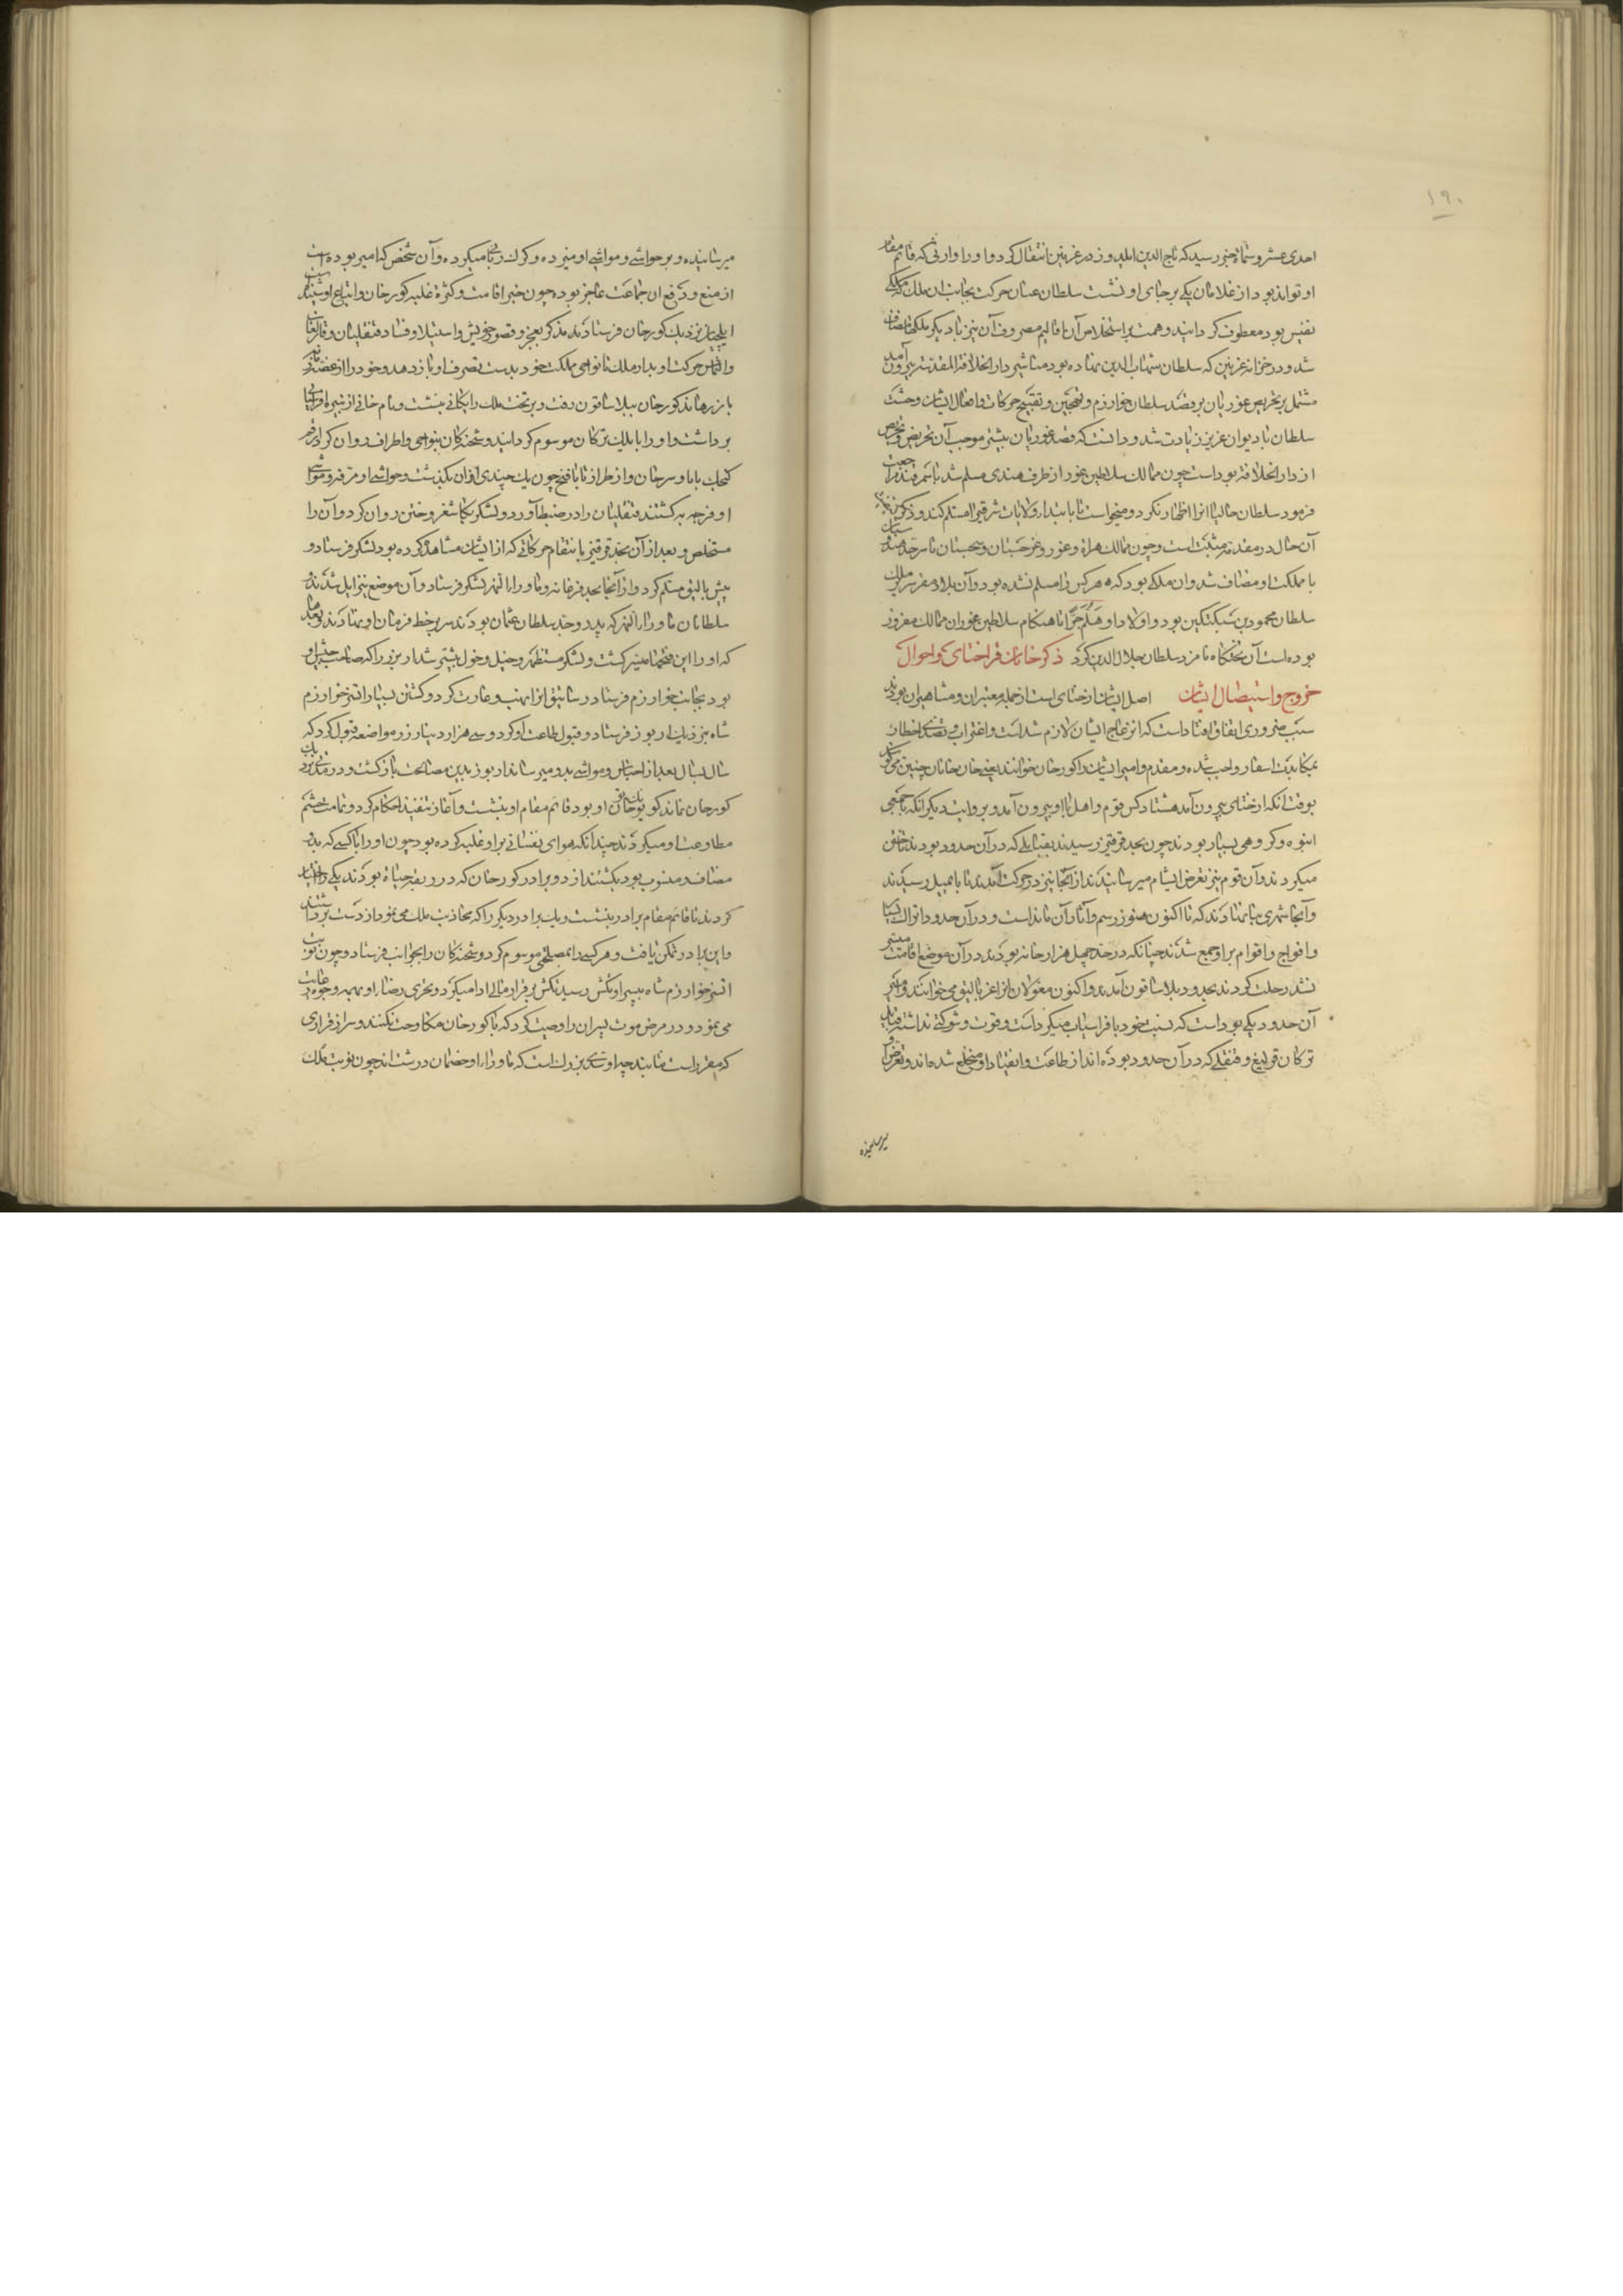 ۱۹۰
احدی عشر و ستمائة خبر رسید که تاج الدین ایلدوز در غزنین انتقال کرد و او را وارثی که قائم مقام
او تواند بود از غلامان یکی بر جای او نشست سلطان عنان حرکت بجانب ان ملک که ملکی
نفیس بود معطوف کردانید و همت بر استخلاص آن با قالیم مصروف آن نیز با دیکر ملکها مضاف
شد و در خزانه غزنین که سلطان شهاب الدین نهاده بود مناشیر دار الخلافة المقدسه بیرون آمد
مشتمل بر تحریص غوریان بر قصد سلطان خوارزم و تهجین و تقبیح حرکات و افعال ایشان وحشت
سلطان با دیوان عزیز زیادت شد و دانست که قصد غوریان بیشتر موجب آن تحریض و تحریص
از دار الخلافة بوداست چون ممالک سلاطین غور از طرف هندی مسلم شد با سمرقند مراجعت
فرمود سلطان حالیا انرا اظهار نکرد و میخواست تا بابتدا ولایات شرقی را مستلم کند و ذکر
آن حال در مقدمه مثبت است و چون ممالک هراة و غور و غرجستان و سجستان تا سرحد هند
با مملکت او مضاف شد و ان ملکی بود که هر کس را مسلم نشده بود و آن بلاد مقر سریر ملک
سلطان محمود بن سبکتکین بود و اولاد او هلم جرا تا هنکام سلاطین غور ان ممالک مفروز
بوده است آن تختکاه نامزد سلطان جلال الدین کرد ذکر خانان قراختای و احوال
خروج و استیصال ایشان اصل ایشان از ختای است از جمله معتبران و مشاهیران بودند
سبب ضروری اتفاق افتاداست که انزعاج ایشان لازم شداست و اغتراب و تصدی اخطار
بمکابدت اسفار واجب شده و مقدم و امیر ایشان را کورخان خوانند یعنی خان خانان چنین می کویند
بوقت انکه از ختای بیرون آمد هشتاد کس قوم و اهل با او بیرون آمد و بروایت دیکر انکه با جمعی
انبوه و کروهی بسیار بودند چون بحد قرقیز رسیدند بقبایلی که در آن حدود بودند تاختن
میکردند و آن قوم نیز تعرض ایشانم میرسانیدند از آنجا نیز در حرکت آمدند تا بایمیل رسیدند
و آنجا شهری بنا نهادند که تا اکنون هنوز رسم و آثار آن مانداست و در آن حدود اتراک بسیار
و افواج و اقوام برو جمع شدند چنانکه در حد چهل هزار خانه بودند در آن موضع اقامت میسر
نشد رحلت کردند بحدود بلاساقون آمدند و اکنون مغولان انرا غزبالیق می خوانند و امیر
آن حدود یکی بوداست که نسبت خود بافراسیاب میکرداست و قوت و شوکتی نداشته و قبایل
ترکان قرلیغ و قنقلی که در آن حدود بوده اند از طاعت و انقیاد او منخلع شده اند و تعرض
میرسانیده
میرسانیده و بر حواشی و مواشی او میزده و کرک ربائی میکرده و آن شخص که امیر بوده است
از منع و دفع ان جماعت عاجز بوده چون خبر اقامت و کثرة غلبه کورخان و اتباع او شنید
ایلچیان نزدیک کورخان فرستاد بتذکر بعجز و قصور خویش و استیلا و فساد قنقلیان و قارلغان
و التماس حرکت او بدار ملک تا نواحی مملکت خود بدست تصرف او باز دهد و خود را از غصه زمانه
باز رهاند کورخان ببلاساقون رفت و بر تخت ملک رایکانی بنشست و نام خانی از نبیره افراسیاب
برداشت و او را بایلک ترکان موسوم کردانید و شحنکان بنواحی و اطراف روان کرد از قم
کمجک تا بارسرخان و از طراز تا بافنج چون یک چندی آوان بکذشت و حواشی او مرفه و مواشی
او فربه کشتند قنقلیان را در ضبط آورد و لشکر بکاشغر و ختن روان کرد و آن را
مستخلص و بعد از آن بحد قرقیز بانتقام حرکاتی که از ایشان مشاهده کرده بود لشکر فرستاد و
بیش بالیق مسلم کرد و از آنجا بحد فرغانه و ماوراء النهر لشکر فرستاد و آن موضع نیز ایل شدند و
سلطانان ماوراء النهر که پدر و جد سلطان عثمان بودند سر بر خط فرمان او نهادند و بعد ما
که او را این فتحها میسر کشت و لشکر مستظهر و خیل و خول بیشتر شد اربوز را که صاحب جیش او
بود بجانب خوارزم فرستاد رساتیق انرا نهب و غارت کرد و کشتن بسیار اتسز خوارزم
شاه بنزدیک اربوز فرستاد و قبول طاعت او کرد و سی هزار دینار زر مواضعه قبول کرد که
سال بسال بعد از اجناس و مواشی بدو میرساند اربوز بدین مصالحت بازکشت و در مدتی نزدیک
کورخان نماند کویونک خاتون او بود قائم مقام او بنشست و آغاز تنفیذ احکام کرد و تمامت حشم
مطاوعت او میکردند چندانکه هوای نفسانی بر او غلبه کرده بود چون او را با کسی که بدو
مضاف و منسوب بود بکشتند از دو برادر کورخان که در ربقه حیاة بودند یکی را اختیار
کردند تا قائم مقام برادر بنشست و یک برادر دیکر را که بحاذبت ملک می نمود از دست برداشتند
و این برادر تمکن یافت و هر کسی را بمصلحتی موسوم کرد و شحنکان را بجوانب فرستاد و چون نوبت
اتسز خوارزم شاه بپسر او تکش رسید تکش بر قرار مالی ادا میکرد و تحری رضاء او بهمه وجوه رعایت
می نمود و در مرض موت پسران را وصیت کرد که با کورخان مکاوحت نکنند و سر از قراری
که مقرر است نتابند چه او سدی بزرک است که ماوراء او خصمان درشت اند چون نوبت ملک